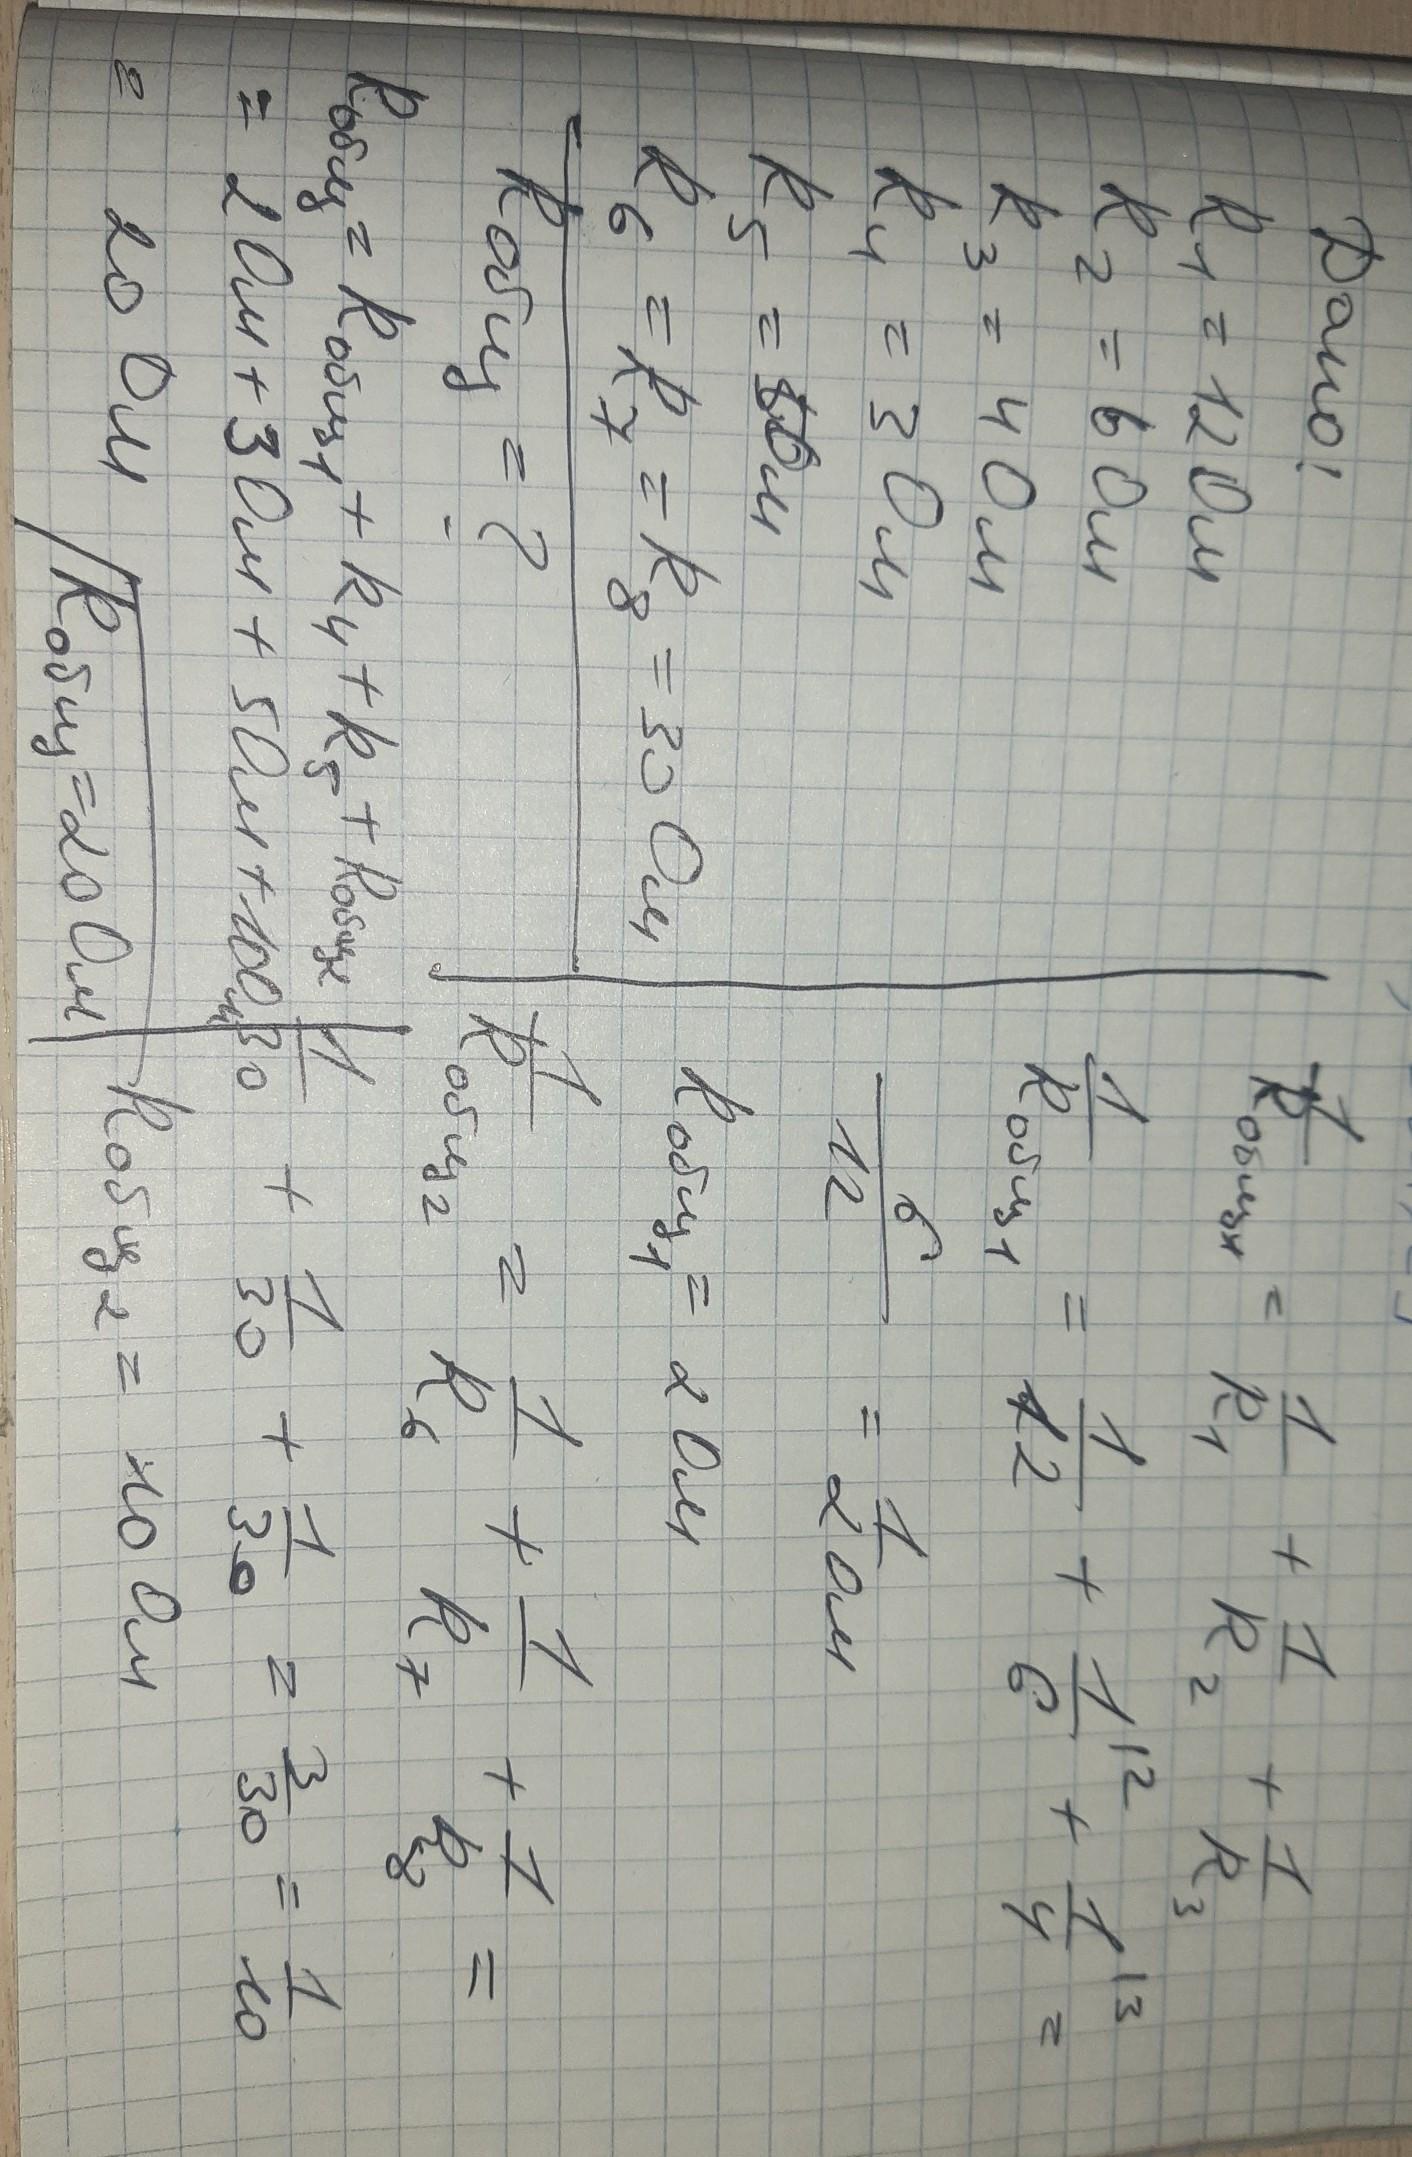 Дано:
R1 = 12 Ом
R2 = 6 Ом
R3 = 4 Ом
R4 = 3 Ом
R5 = 5 Ом
R6 = R7 = R8 = 30 Ом
Rобщ = ?
1/Rобщ1 = 1/R1 + 1/R2 + 1/R3
1/Rобщ1 = 1/12 + 1/6 |2 + 1/4 |3 =
6/12 = 1/2 Ом
Rобщ1 = 2 Ом
1/Rобщ2 = 1/R6 + 1/R7 + 1/R8 =
1/30 + 1/30 + 1/30 = 3/30 = 1/10
Rобщ2 = 10 Ом
Rобщ = Rобщ1 + R4 + R5 + Rобщ2
= 2 Ом + 3 Ом + 5 Ом + 10 Ом
= 20 Ом
Rобщ = 20 Ом